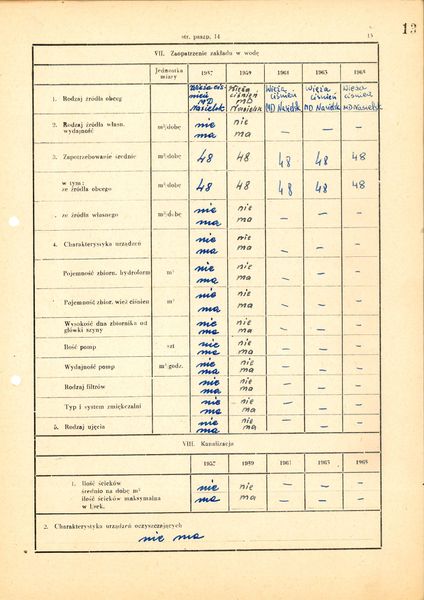 13
str. paszp. 14
15
VII. Zaopatrzenie zakładu w wodę
Jednostka miary 1957 1959 1961 1963 1968
1. Rodzaj źródła obceg Wieża ciśnień MD Nasielsk Wieża ciśnień MD Nasielsk Wieża ciśnień MD Nasielsk Wieża ciśnień MD Nasielsk Wieża ciśnień MD Nasielsk
2. Rodzaj źródła własn. wydajność m³/dobę nie ma nie ma — — —
3. Zapotrzebowanie średnie m³/dobę 48 48 48 48 48
w tym: ze źródła obcego m³/dobę 48 48 48 48 48
ze źródła własnego m³/dobę nie ma nie ma — — —
4. Charakterystyka urządzeń nie ma nie ma — — —
Pojemność zbiorn. hydroform m³ nie ma nie ma — — —
Pojemność zbior. wież ciśnień m³ nie ma nie ma — — —
Wysokość dna zbiornika od główki szyny nie ma nie ma — — —
Ilość pomp szt nie ma nie ma — — —
Wydajność pomp m³/godz. nie ma nie ma — — —
Rodzaj filtrów nie ma nie ma — — —
Typ i system zmiękczalni nie ma nie ma — — —
5. Rodzaj ujęcia nie ma nie ma — — —
VIII. Kanalizacja
1957 1959 1961 1963 1968
1. Ilość ścieków średnio na dobę m³ nie nie — — —
ilość ścieków maksymalna w l/sek. ma ma — — —
2. Charakterystyka urządzeń oczyszczających
nie ma